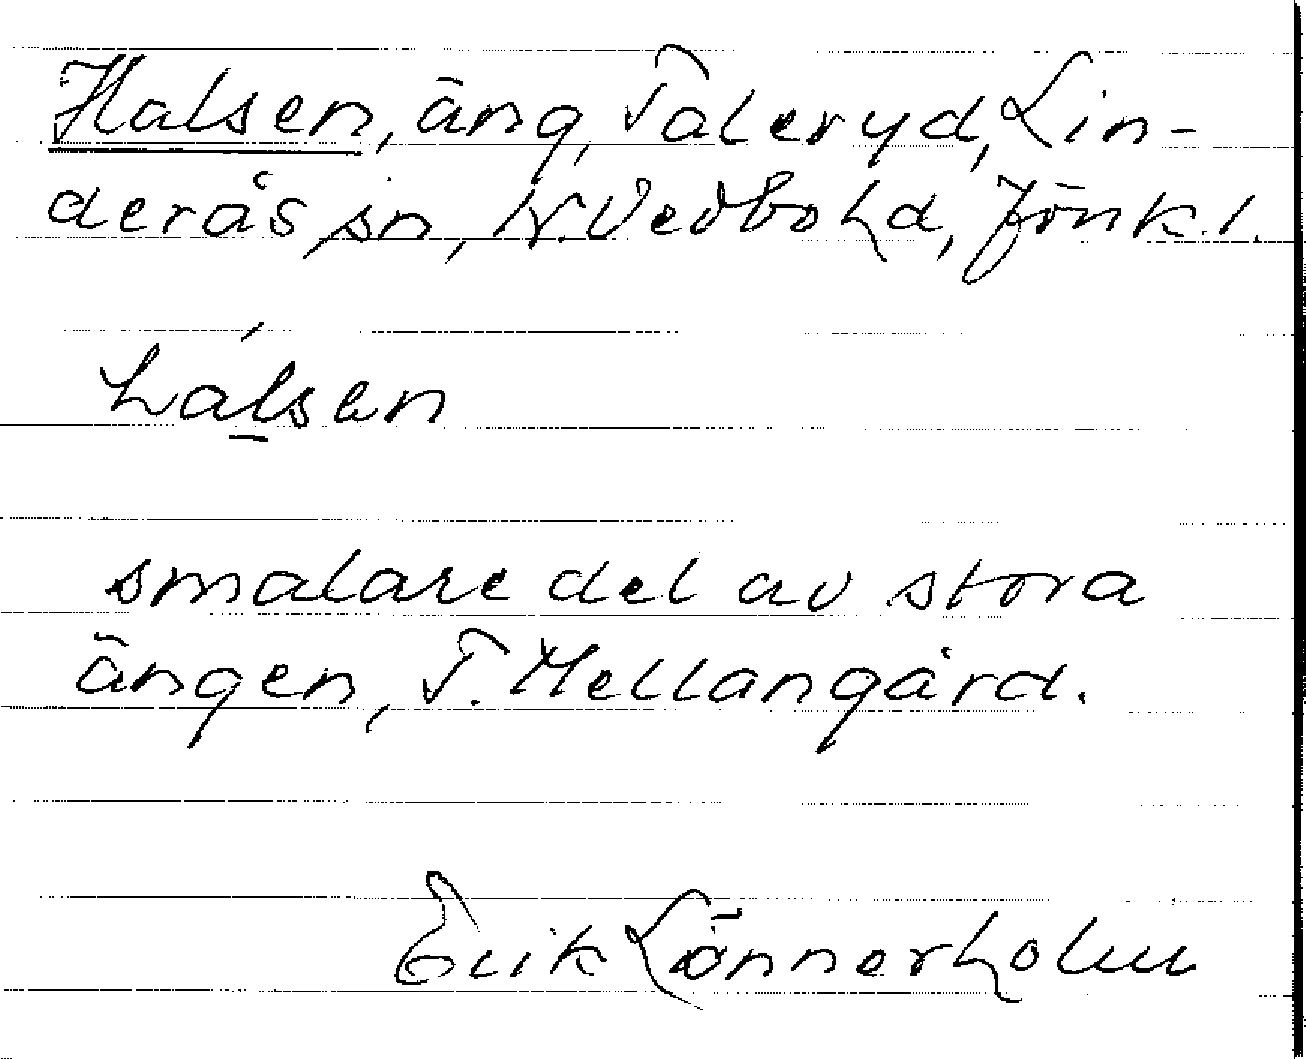 Halsen, äng, Taleryd, Lin-
derås sn, N. Vedbo hd, Jönk. l.
hálsen
smalare del av stora
ängen, T. Mellangård.
Erik Lönnerholm